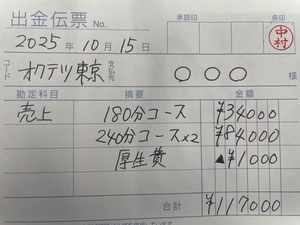 出金伝票 No.
承認印 係印 中村
2025年10月15日
コード オクテツ東京 支払先 〇〇〇 様
勘定科目 摘要 金額
売上 180分コース ¥34000
240分コース×2 ¥84000
厚生費 ▲¥1000
合計 ¥117000